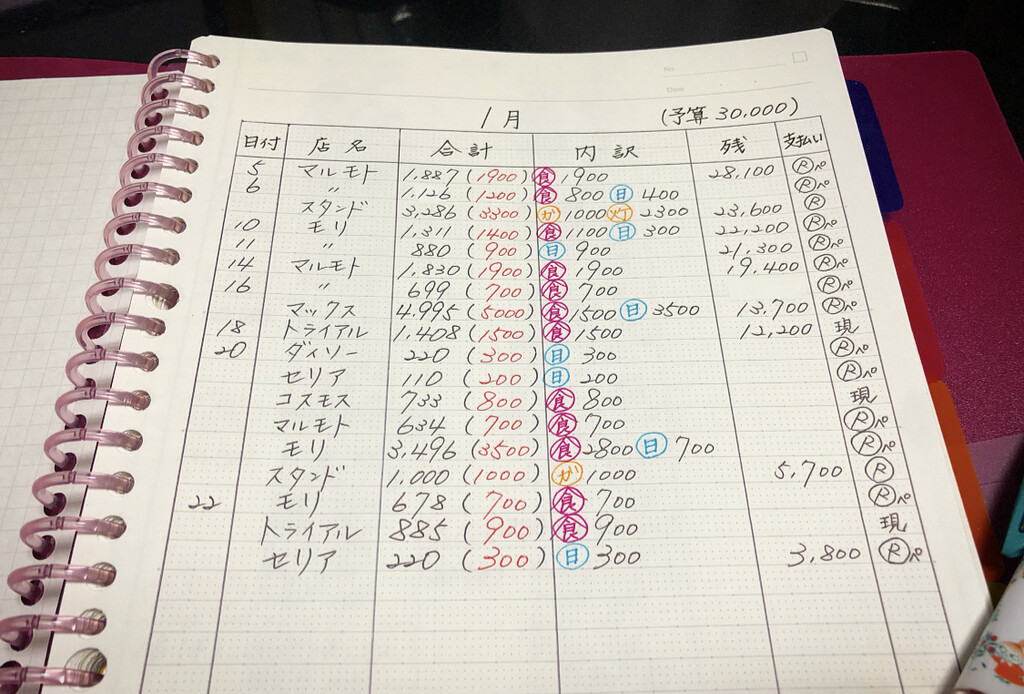 No.
Date
1月 (予算 30,000)
日付 店名 合計 内訳 残 支払い
5 マルモト 1,887 (1900) 食 1900 28,100 Rペ
6 〃 1,126 (1200) 食 800 日 400 Rペ
スタンド 3,286 (3300) ガ 1000 灯 2300 23,600 R
10 モリ 1,311 (1400) 食 1100 日 300 22,200 Rペ
11 〃 880 (900) 日 900 21,300 Rペ
14 マルモト 1,830 (1900) 食 1900 19,400 Rペ
16 〃 699 (700) 食 700 Rペ
マックス 4,995 (5000) 食 1500 日 3500 13,700 Rペ
18 トライアル 1,408 (1500) 食 1500 12,200 現
20 ダイソー 220 (300) 日 300 Rペ
セリア 110 (200) 日 200 Rペ
コスモス 733 (800) 食 800 現
マルモト 634 (700) 食 700 Rペ
モリ 3,496 (3500) 食 2800 日 700 Rペ
スタンド 1,000 (1000) ガ 1000 5,700 R
22 モリ 678 (700) 食 700 Rペ
トライアル 885 (900) 食 900 現
セリア 220 (300) 日 300 3,800 Rペ